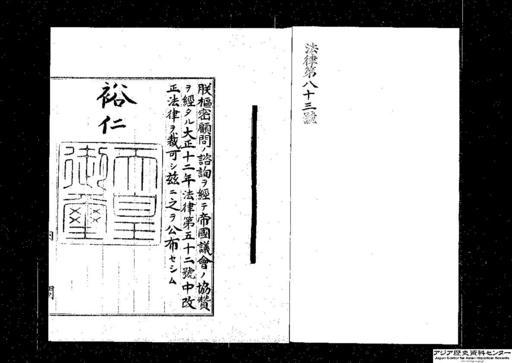 法律第八十三號
朕樞密顧問ノ諮詢ヲ經テ帝國議會ノ協贊
ヲ經タル大正十二年法律第五十二號中改
正法律ヲ裁可シ茲ニ之ヲ公布セシム
裕仁
天皇
御璽
内
閣
アジア歴史資料センター
Japan Center for Asian Historical Records